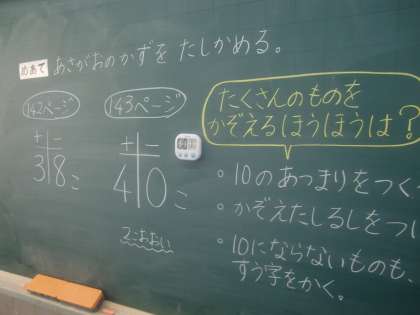 めあて あさがおのかずを たしかめる。
142ページ
十一
38こ
143ページ
十一
40こ
2こおおい
たくさんのものを
かぞえるほうほうは？
・10のあつまりをつく
・かぞえたしるしをつけ
・10にならないものも、
すう字をかく。